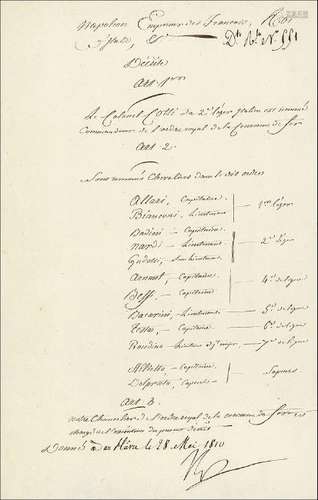 Napoleon Empereur des Francais, Roi
d'Italie, &
Décrète
Art 1er
Le Colonel Cotti du 2e léger Italien est nommé
Commandeur de l'ordre royal de la Couronne de fer
Art 2.
Sont nommés Chevaliers dans le dit ordre
Allari, Capitaine — 1er léger
Bianconi, Lieutenant
Dadini — Capitaine
Nardi — Lieutenant — 2e léger
Guidoti, Sous Lieutenant
Capitaine — 4e de ligne
Beffi — Capitaine
Bacarini, Lieutenant — 5e de ligne
Capitaine — 6e de ligne
Rondina — 7e de ligne
Capitaine — Sapeurs
Delprato, Caporal
Art 3.
notre Chancelier de l'ordre royal de la couronne de fer est
chargé de l'exécution du présent décret
Donné au Havre le 28 Mai 1810